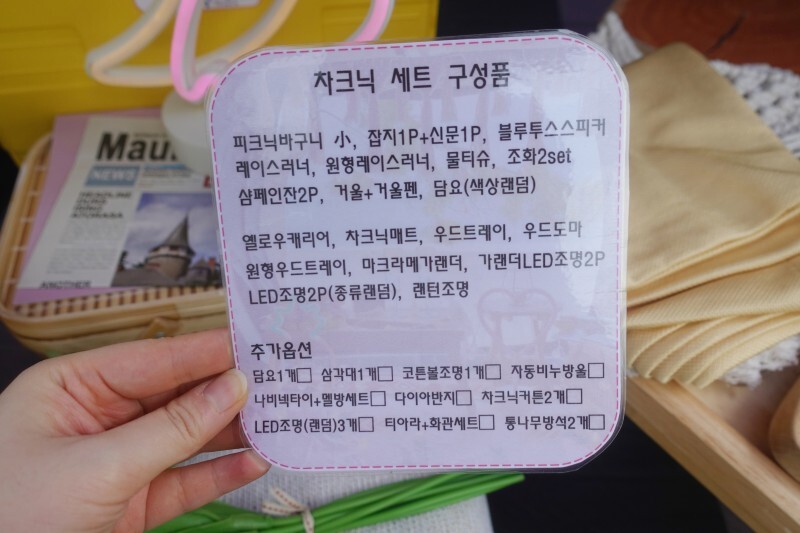 차크닉 세트 구성품
피크닉바구니 小, 잡지1P+신문1P, 블루투스스피커
레이스러너, 원형레이스러너, 물티슈, 조화2set
샴페인잔2P, 거울+거울펜, 담요(색상랜덤)
옐로우캐리어, 차크닉매트, 우드트레이, 우드도마
원형우드트레이, 마크라메가랜더, 가랜더LED조명2P
LED조명2P(종류랜덤), 랜턴조명
추가옵션
담요1개□ 삼각대1개□ 코튼볼조명1개□ 자동비누방울□
나비넥타이+멜방세트□ 다이아반지□ 차크닉커튼2개□
LED조명(랜덤)3개□ 티아라+화관세트□ 통나무방석2개□
Mau
NEWS
HEADLINE
ANOTHER